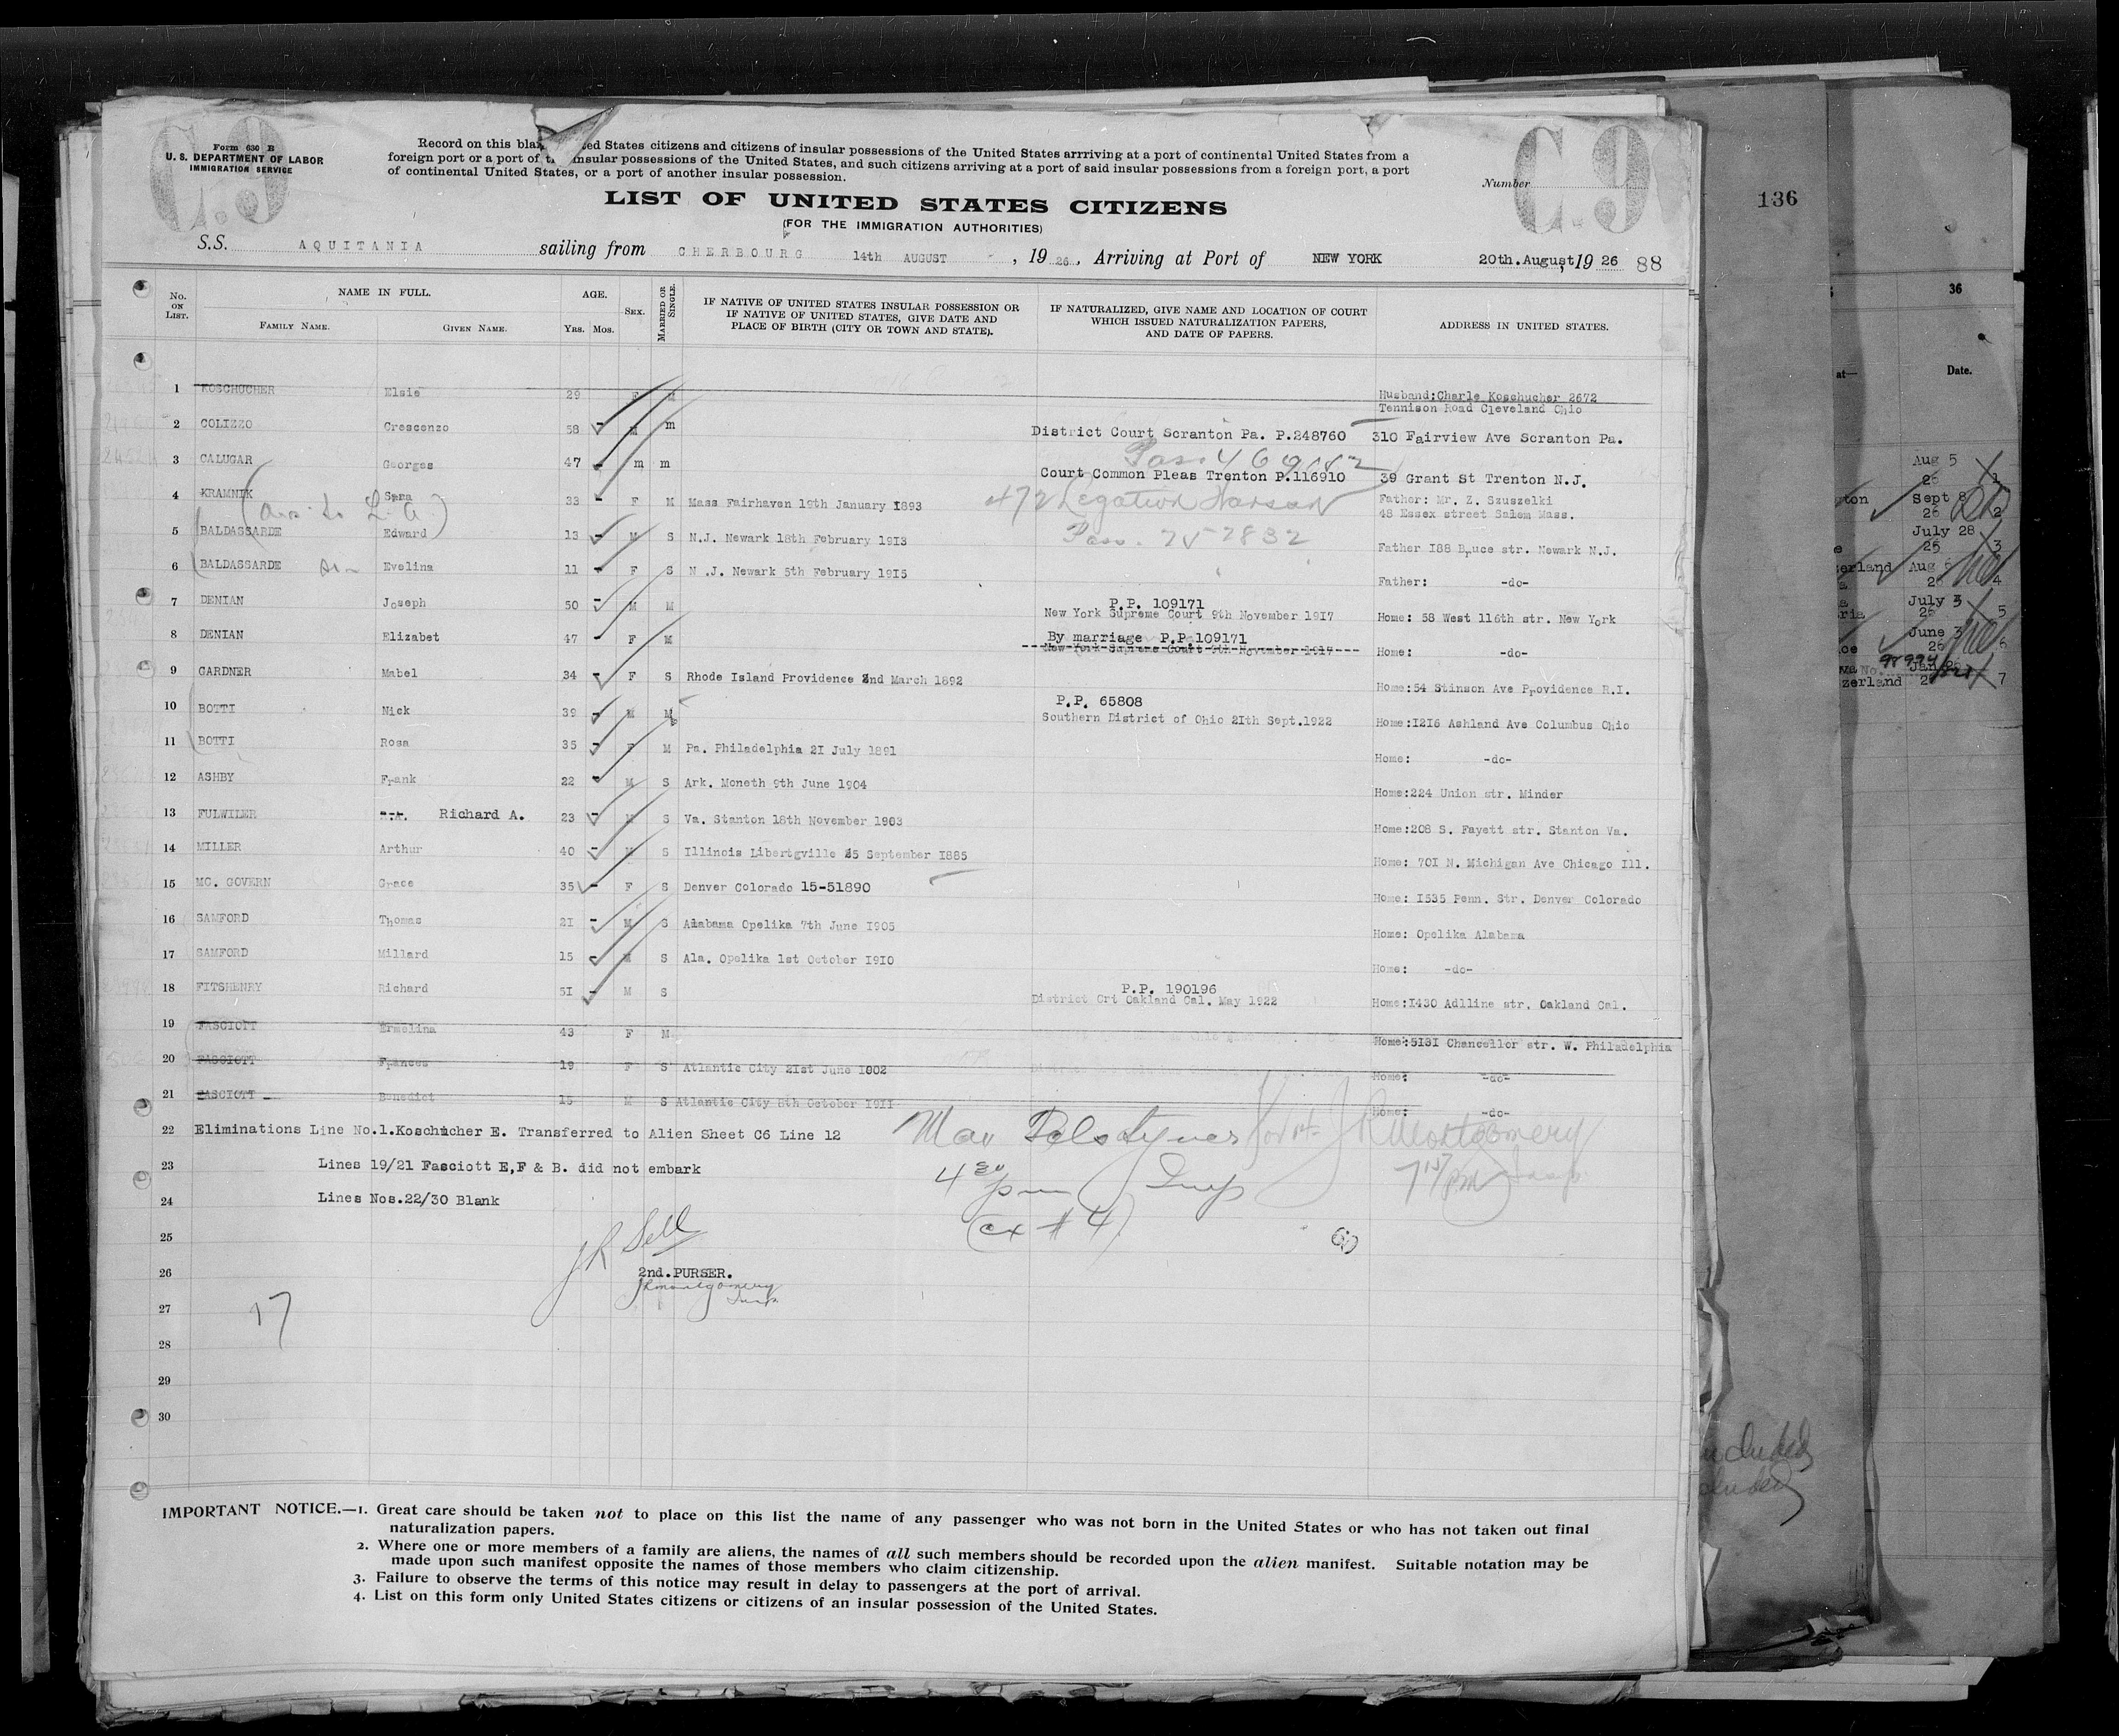 C.9
C.9
Form 630 B
U. S. DEPARTMENT OF LABOR
IMMIGRATION SERVICE
Record on this blan ted States citizens and citizens of insular possessions of the United States arrriving at a port of continental United States from a
foreign port or a port of insular possessions of the United States, and such citizens arriving at a port of said insular possessions from a foreign port, a port
of continental United States, or a port of another insular possession.
Number
LIST OF UNITED STATES CITIZENS
(FOR THE IMMIGRATION AUTHORITIES)
S.S. AQUITANIA sailing from CHERBOURG 14th AUGUST , 19 26, Arriving at Port of NEW YORK 20th.August, 19 26 88
No. ON LIST. NAME IN FULL. FAMILY NAME. GIVEN NAME. AGE. Yrs. Mos. SEX. MARRIED OR SINGLE. IF NATIVE OF UNITED STATES INSULAR POSSESSION OR IF NATIVE OF UNITED STATES, GIVE DATE AND PLACE OF BIRTH (CITY OR TOWN AND STATE). IF NATURALIZED, GIVE NAME AND LOCATION OF COURT WHICH ISSUED NATURALIZATION PAPERS, AND DATE OF PAPERS. ADDRESS IN UNITED STATES.
1 KOSCHUCHER Elsie 29 F M Husband:Charle Koschucher 2672
Tennison Road Cleveland Ohio
2 COLIZZO Crescenzo 58 M m District Court Scranton Pa. P.248760 310 Fairview Ave Scranton Pa.
3 CALUGAR Georges 47 m m Court Common Pleas Trenton P.116910 39 Grant St Trenton N.J.
4 KRAMNIK Sara 33 F M Mass Fairhaven 19th January 1893 472 Legation Warsaw Father: Mr. Z. Szuszelki
48 Essex street Salem Mass.
5 BALDASSARDE Edward 13 M S N.J. Newark 18th February 1913 Pass. 252832 Father 188 Bruce str. Newark N.J.
6 BALDASSARDE Evelina 11 F S N .J. Newark 5th February 1915 Father: -do-
7 DENIAN Joseph 50 M M P.P. 109171
New York Supreme Court 9th November 1917 Home: 58 West 116th str. New York
8 DENIAN Elizabet 47 F M By marriage P.P 109171
New York Supreme Court 9th November 1917 Home: -do-
9 GARDNER Mabel 34 F S Rhode Island Providence 2nd March 1892 Home:54 Stinson Ave Providence R.I.
10 BOTTI Nick 39 M M P.P. 65808
Southern District of Ohio 21th Sept.1922 Home:1216 Ashland Ave Columbus Ohio
11 BOTTI Rosa 35 F M Pa. Philadelphia 21 July 1891 Home: -do-
12 ASHBY Frank 22 M S Ark. Moneth 9th June 1904 Home:224 Union str. Minder
13 FULWILER R.A. Richard A. 23 M S Va. Stanton 18th November 1903 Home:208 S. Fayett str. Stanton Va.
14 MILLER Arthur 40 M S Illinois Libertgville 25 September 1885 Home: 701 N. Michigan Ave Chicago Ill.
15 MC. GOVERN Grace 35 F S Denver Colorado 15-51890 Home: 1535 Penn. Str. Denver Colorado
16 SAMFORD Thomas 21 M S Alabama Opelika 7th June 1905 Home: Opelika Alabama
17 SAMFORD Millard 15 M S Ala. Opelika 1st October 1910 Home: -do-
18 FITSHENRY Richard 51 M S P.P. 190196
District Crt Oakland Cal. May 1922 Home:1430 Adlline str. Oakland Cal.
19 FASCIOTT Ermelina 43 F M Home:5131 Chancellor str. W. Philadelphia
20 FASCIOTT Frances 19 F S Atlantic City 21st June 1902 Home: -do-
21 FASCIOTT Benedict 15 M S Atlantic City 8th October 1911 Home: -do-
22 Eliminations Line No.1.Koschucher E. Transferred to Alien Sheet C6 Line 12
23 Lines 19/21 Fasciott E,F & B. did not embark
24 Lines Nos.22/30 Blank
J R Montgomery
Insp
4 30 pm Insp
(Ex # 4)
25
26 J R Sell
2nd.PURSER.
JRMontgomery
Insp.
27 17
28
29
30
IMPORTANT NOTICE.—1. Great care should be taken not to place on this list the name of any passenger who was not born in the United States or who has not taken out final
naturalization papers.
2. Where one or more members of a family are aliens, the names of all such members should be recorded upon the alien manifest. Suitable notation may be
made upon such manifest opposite the names of those members who claim citizenship.
3. Failure to observe the terms of this notice may result in delay to passengers at the port of arrival.
4. List on this form only United States citizens or citizens of an insular possession of the United States.
136
36
at—
Date.
Aug 5
26 1
Sept 8
26 2
July 28
25 3
erland Aug
26 4
July 3
26 5
June 3
26 6
No. Jan 26
zerland 7